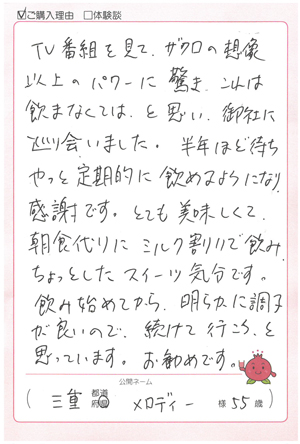 ☑ご購入理由 □体験談
TV番組を見て、ザクロの想像
以上のパワーに驚き、これは
飲まなくては、と思い、御社に
巡り会いました。半年ほど待ち
やっと定期的に飲めるようになり
感謝です。とても美味しくて、
朝食代りにミルク割りで飲み、
ちょっとしたスイーツ気分です。
飲み始めてから、明らかに調子
が良いので、続けて行こう、と
思っています。お勧めです。
公開ネーム
(三重 都道府県 メロディー 様 55 歳)